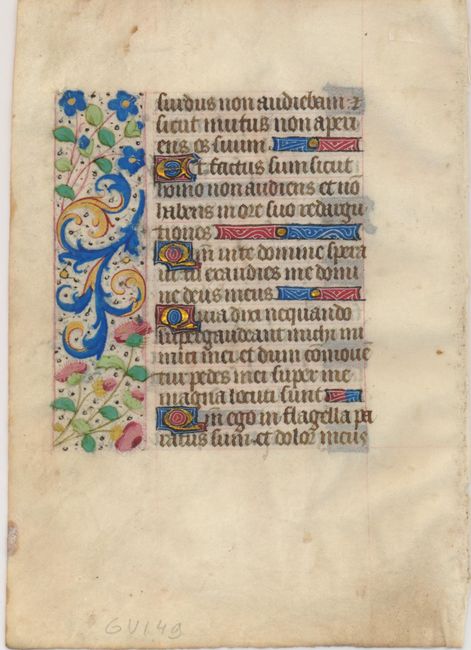 surdus non audiebam: et
sicut mutus non aperi
ens os suum
Et factus sum sicut
homo non audiens et nō
habens in ore suo redargu
tiones
Qm̄ in te domine spera
ui tu exaudies me domi
ne deus meus
Quia dixi nequando
supergaudeant michi ini
mici mei et dum cōmouē
tur pedes mei super me
magna locuti sunt
Qm̄ ego in flagella pa
ratus sum et dolor meus
GVI.49